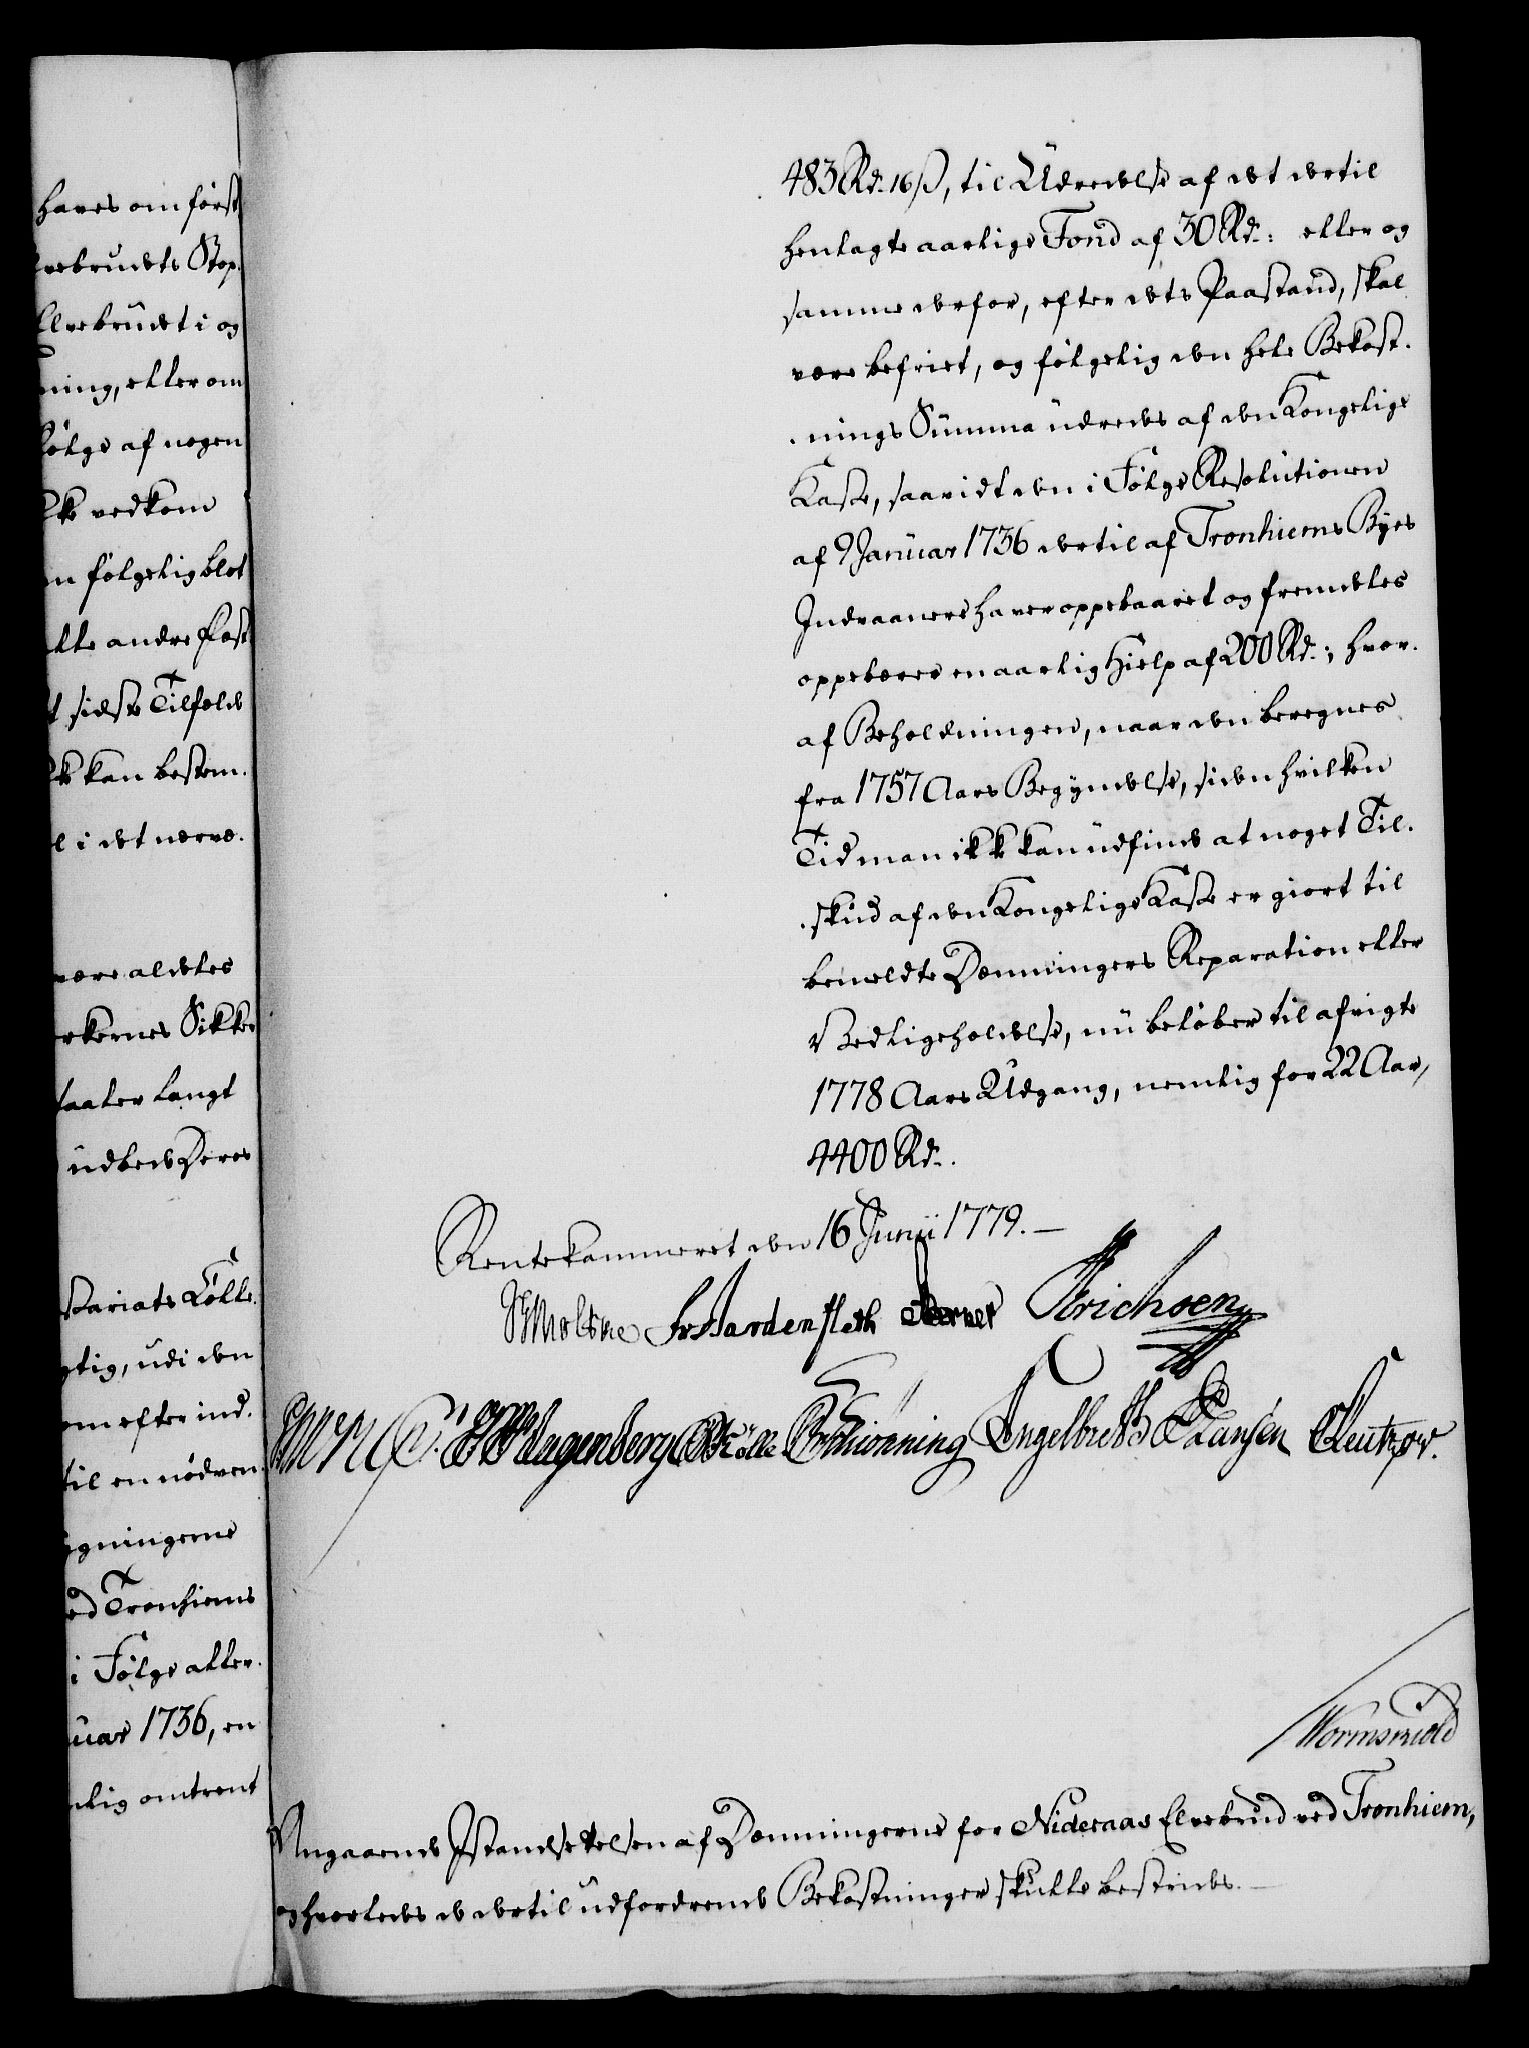 haves om først
vebrudets Stop.
Elvebrudet i og
ning, eller om
følge af nogen
kke vedkom
en følgelig blot
alle andre Post
t sidste Tilfælde
ke kan bestem.
l i det nærvæ.
være aldeles
erkernes Sikker
taaler langt
udbede Deres
stariats Colle.
gtig, udi den
om efter ind.
til en nødven
gningerne
ed Tronhiems
i Følge aller.
uar 1736, en
nlig omtrent
483 Rd. 16 ß, til Udredelse af det dertil
henlagte aarlige Fond af 30 Rd.: eller og
samme derfor, efter dets Paastand, skal
være befriet, og følgelig den hele Bekost.
nings Summa udredes af den Kongelige
Kasse, saavidt den i Følge Resolutionen
af 9 Januar 1736 dertil af Tronhiems Byes
Indvaanere haver oppebaaret og fremdeles
oppebærer en aarlig Hielp af 200 Rd.; hvor.
af Beholdningen, naar den beregnes
fra 1757 Aars Begyndelse, siden hvilken
Tid man ikke kan udfinde at noget Til.
skud af den Kongelige Kasse er giort til
bemeldte Dæmningers Reparation eller
Vedligeholdelse, nu beløber til afvigte
1778 Aars Udgang, nemlig for 22 Aar,
4400 Rd.
Rentekammeret den 16 Junii 1779. —
Moltke Fr Bardenfleth Berner Erichsen
Wagenberg Schionning Engelbreth Hansen Leutzow.
Wormskiold
Angaaende Istandsettelsen af Dæmningerne for Nideraas Elvebrud ved Tronhiem,
og hvorledes de dertil udfordrende Bekostninger skulle bestrides. —